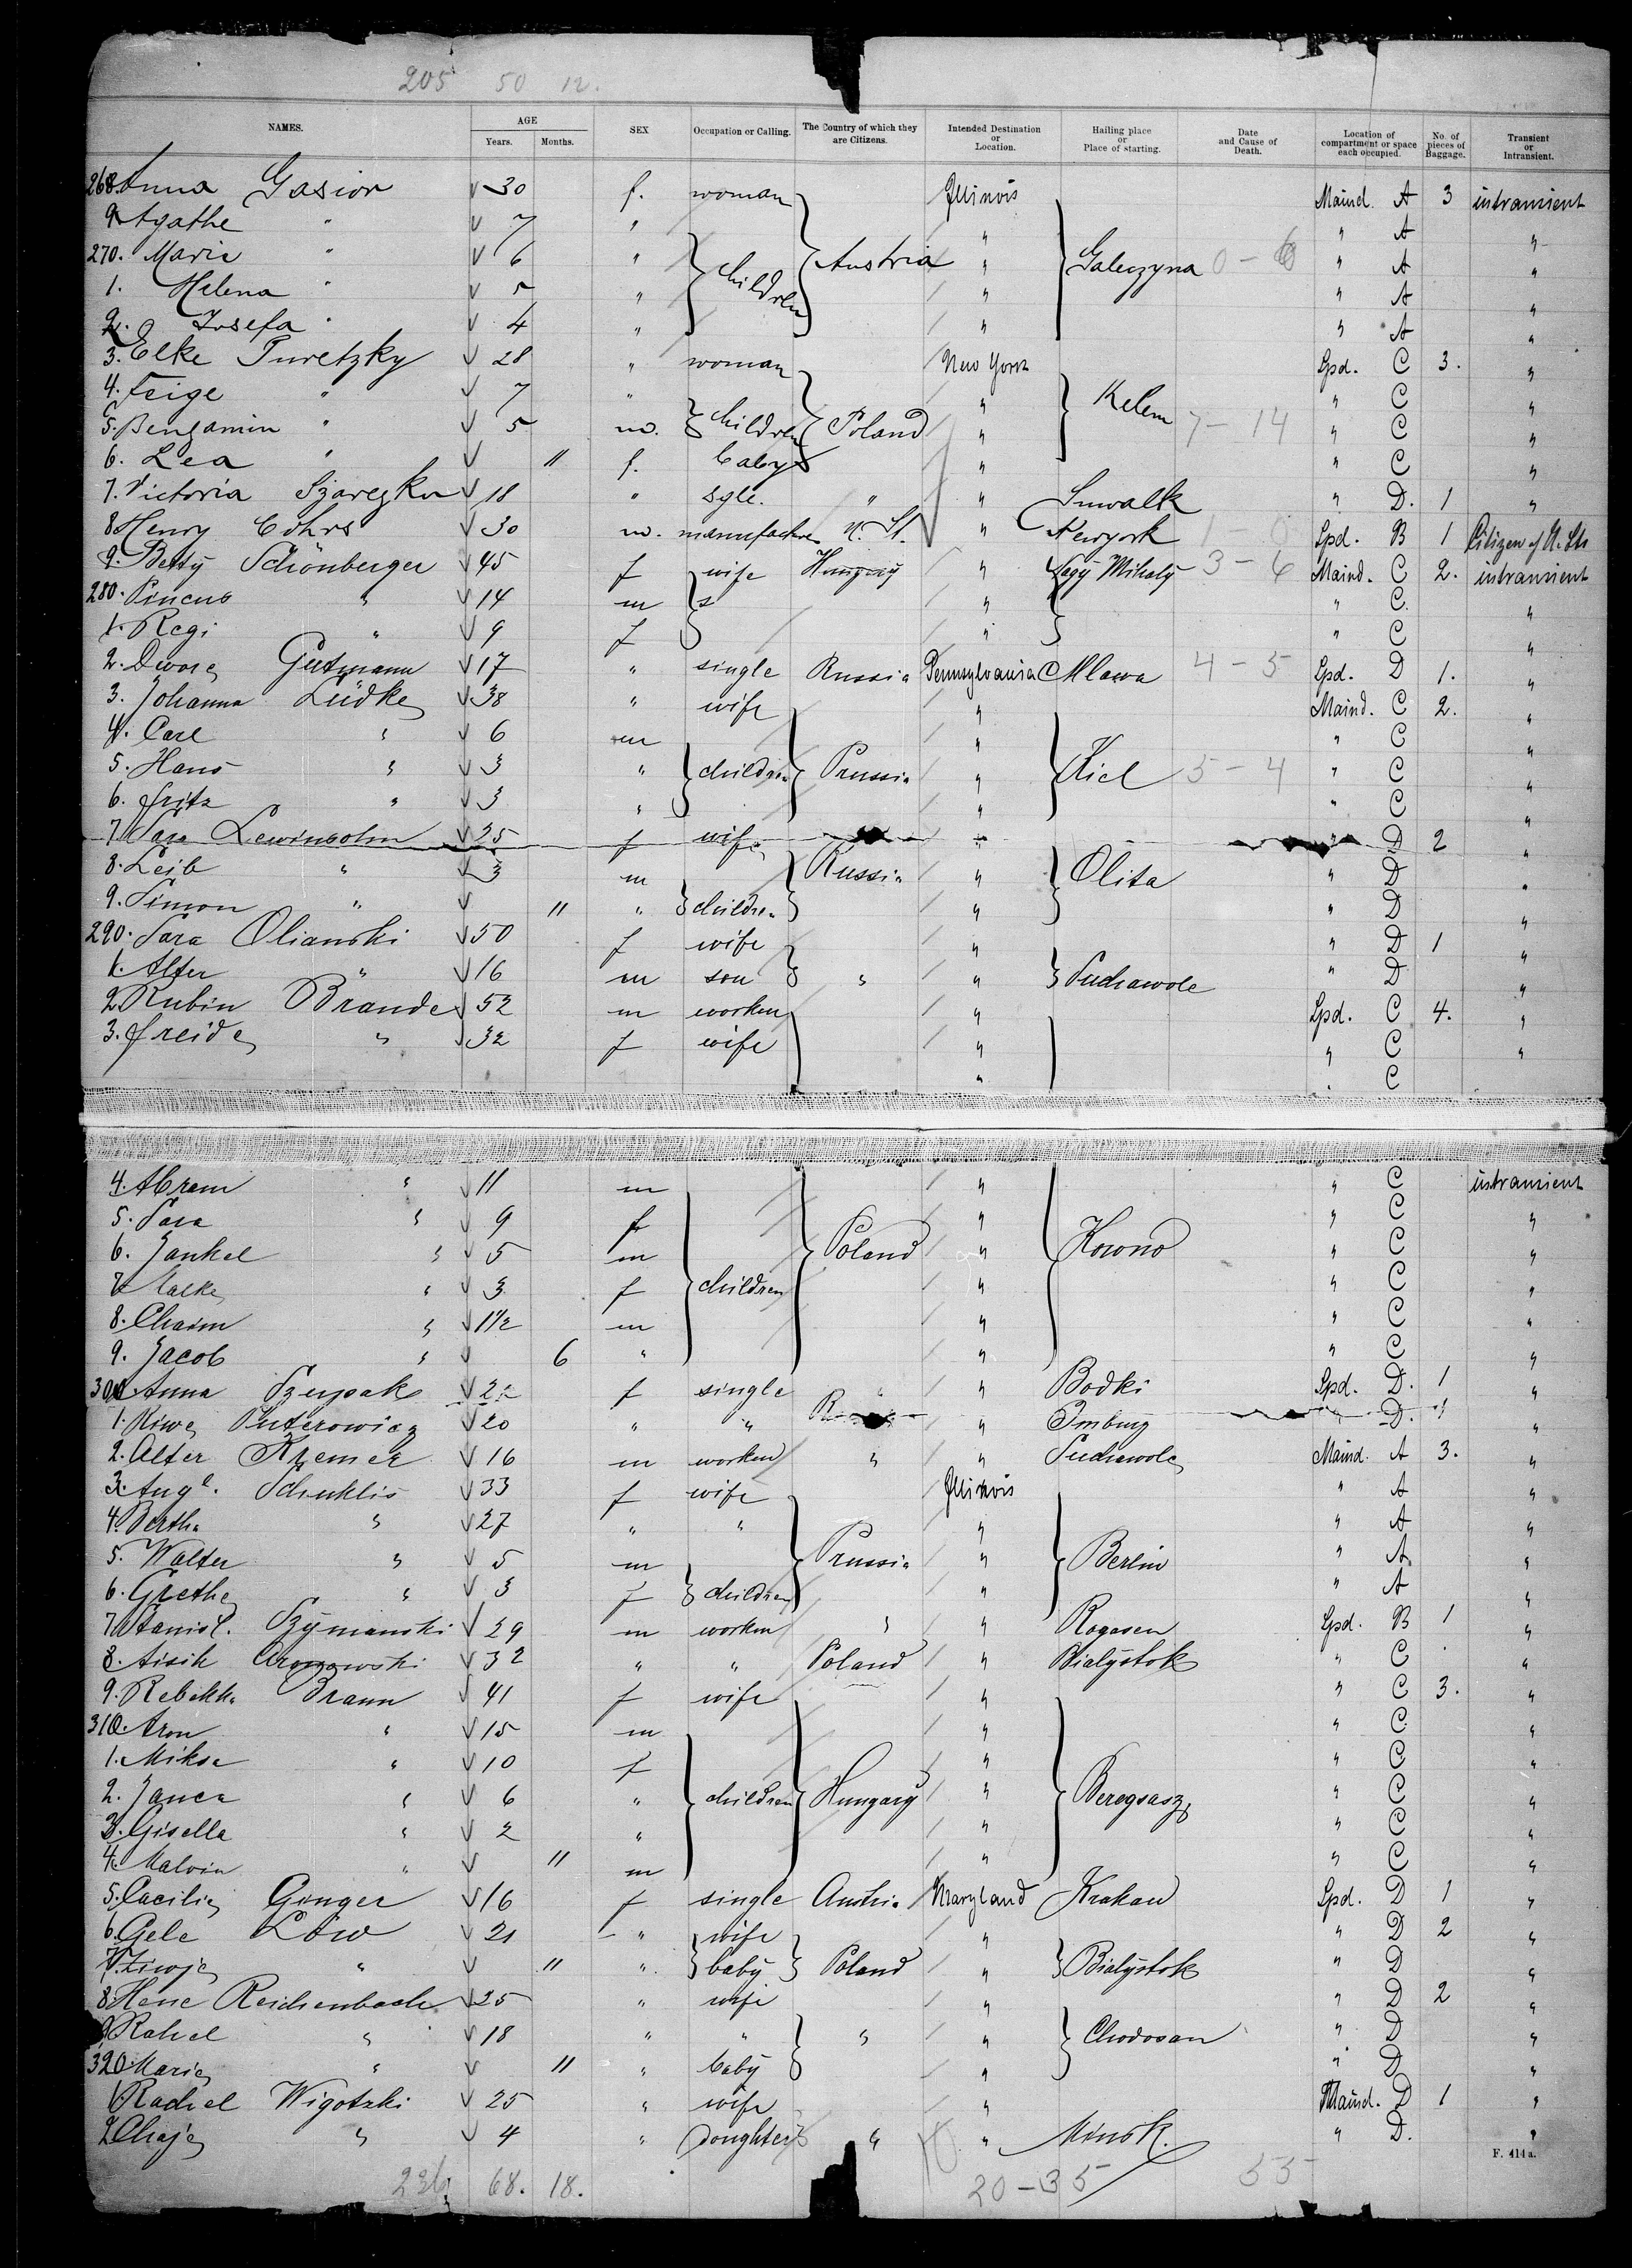 205 50 12.
NAMES. AGE Years. Months. SEX Occupation or Calling. The Country of which they are Citizens. Intended Destination or Location. Hailing place or Place of starting. Date and Cause of Death. Location of compartment or space each occupied. No. of pieces of Baggage. Transient or Intransient.
268. Anna Gasior 30 f. woman Illinois Maind. A 3 intransient
9. Agathe " 7 " " " A "
270. Marie " 6 " children Austria " Galeczyna 0 - 6 " A "
1. Helena " 5 " " " A "
2. Josefa " 4 " " " A "
3. Elke Turetzky 28 " woman New York Spd. C 3. "
4. Feige " 7 " " Kelem " C "
5. Benjamin " 5 m. children Poland " 7 - 14 " C "
6. Lea " 11 f. baby " " C "
7. Victoria 18 " sgle. " " Suwalk " D. 1 "
8. Henry Cohrs 30 m. manufacturer U. St. " Newyork Spd. B 1 Citizen of U. Sts
9. Betty Schönberger 45 f wife Hungary " Nagy Mihaly 3 - 6 Maind. C 2. intransient
280. Pincus " 14 m s " " C. "
1. Regi " 9 f " " C "
2. Dwore Gutmann 17 " single Russia Pennsylvania Mlawa 4 - 5 Spd. D 1. "
3. Johanna Lüdke 38 " wife " Maind. C 2. "
4. Carl " 6 m " " C "
5. Hans " 3 " children Prussia " Kiel 5 - 4 " C "
6. Fritz " 3 " " " C "
7. Sara Lewinsohn 25 f wife " " D 2 "
8. Leib " 3 m Russia " Olita " D "
9. Simon " 11 " children " " D "
290. Sara Olianski 50 f wife " " D 1 "
1. Alter " 16 m son " " Suchawole " D "
2. Rubin Brande 52 m worken " Spd. C 4. "
3. Freide " 32 f wife " " C "
" " C
4. Abram " 11 m " " C intransient
5. Sara " 9 f " " C "
6. Jankel " 5 m Poland " Kowno " C "
7. Malke " 3 f children " " C "
8. Chaim " 1 1/2 m " " C "
9. Jacob " 6 " " " C "
300. Anna 22 f single " " Bodki Spd. D. 1 "
1. Riwe 20 " " " " D. 1 "
2. Alter Kremer 16 m worken " " Suchawole Maind. A 3. "
3. Aug<sup>e</sup>. Schuklis 33 f wife Illinois " A "
4. Bertha " 27 " " " " A "
5. Walter " 5 m Prussia " Berlin " A "
6. Grethe " 3 f children " " A "
7. Stanisl. Szymanski 29 m worken " " Rogasen Spd. B 1 "
8. Aisik 32 " " Poland " Bialystok " C "
9. Rebekka Braun 41 f wife " " C 3. "
310. Aron " 15 m " " C "
1. Miksa " 10 f " " C "
2. Janca " 6 " children Hungary " Beregsasz " C "
3. Gisella " 2 " " " C "
4. Malvin " 11 m " " C "
5. Cacilie Ginger 16 f single Austria Maryland Krakau Spd. D 1 "
6. Gele Löw 21 " wife " " D 2 "
7. Ziwje " 11 " baby Poland " Bialystok " D "
8. Hene Reichenbach 25 " wife " " D 2 "
9 Rahel " 18 " " " " Chodosan " D "
320. Marie " 11 " baby " " D "
1. Rachel Wigotzki 25 " wife " Maind. D 1 "
2. Chaje " 4 " doughter " " Minsk. " D. "
236 68. 18. 20 - 35 55
F. 414 a.